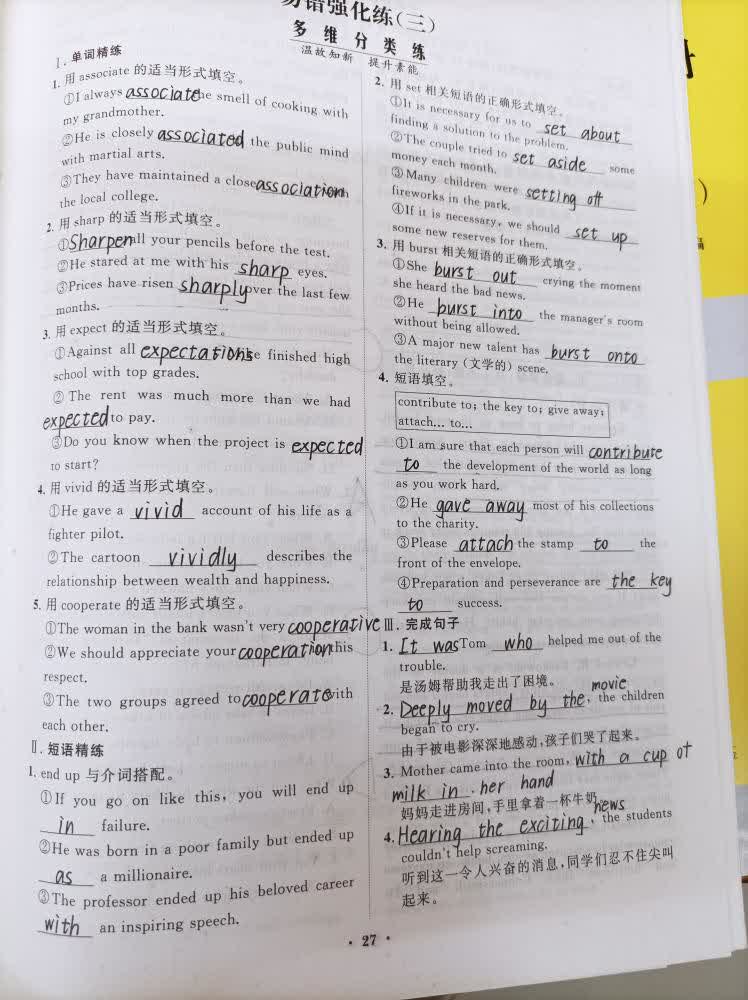 易错强化练(三)
多维分类练
温故知新 提升素能
Ⅰ.单词精练
1. 用 associate 的适当形式填空。
①I always associate the smell of cooking with
my grandmother.
②He is closely associated the public mind
with martial arts.
③They have maintained a close association with
the local college.
2. 用 sharp 的适当形式填空。
①Sharpen all your pencils before the test.
②He stared at me with his sharp eyes.
③Prices have risen sharply over the last few
months.
3. 用 expect 的适当形式填空。
①Against all expectations he finished high
school with top grades.
② The rent was much more than we had
expected to pay.
③Do you know when the project is expected
to start?
4. 用 vivid 的适当形式填空。
①He gave a vivid account of his life as a
fighter pilot.
②The cartoon vividly describes the
relationship between wealth and happiness.
5. 用 cooperate 的适当形式填空。
①The woman in the bank wasn't very cooperative
②We should appreciate your cooperation this
respect.
③The two groups agreed to cooperate with
each other.
Ⅱ.短语精练
1. end up 与介词搭配。
①If you go on like this, you will end up
in failure.
②He was born in a poor family but ended up
as a millionaire.
③The professor ended up his beloved career
with an inspiring speech.
2. 用 set 相关短语的正确形式填空。
①It is necessary for us to set about
finding a solution to the problem.
②The couple tried to set aside some
money each month.
③Many children were setting off
fireworks in the park.
④If it is necessary, we should set up
some new reserves for them.
3. 用 burst 相关短语的正确形式填空。
①She burst out crying the moment
she heard the bad news.
②He burst into the manager's room
without being allowed.
③A major new talent has burst onto
the literary (文学的) scene.
4. 短语填空。
contribute to; the key to; give away;
attach... to...
①I am sure that each person will contribute
to the development of the world as long
as you work hard.
②He gave away most of his collections
to the charity.
③Please attach the stamp to the
front of the envelope.
④Preparation and perseverance are the key
to success.
Ⅲ.完成句子
1. It was Tom who helped me out of the
trouble.
是汤姆帮助我走出了困境。
2. Deeply moved by the movie, the children
began to cry.
由于被电影深深地感动,孩子们哭了起来。
3. Mother came into the room, with a cup of
milk in her hand
妈妈走进房间,手里拿着一杯牛奶。
4. Hearing the exciting news, the students
couldn't help screaming.
听到这一令人兴奋的消息,同学们忍不住尖叫
起来。
· 27 ·